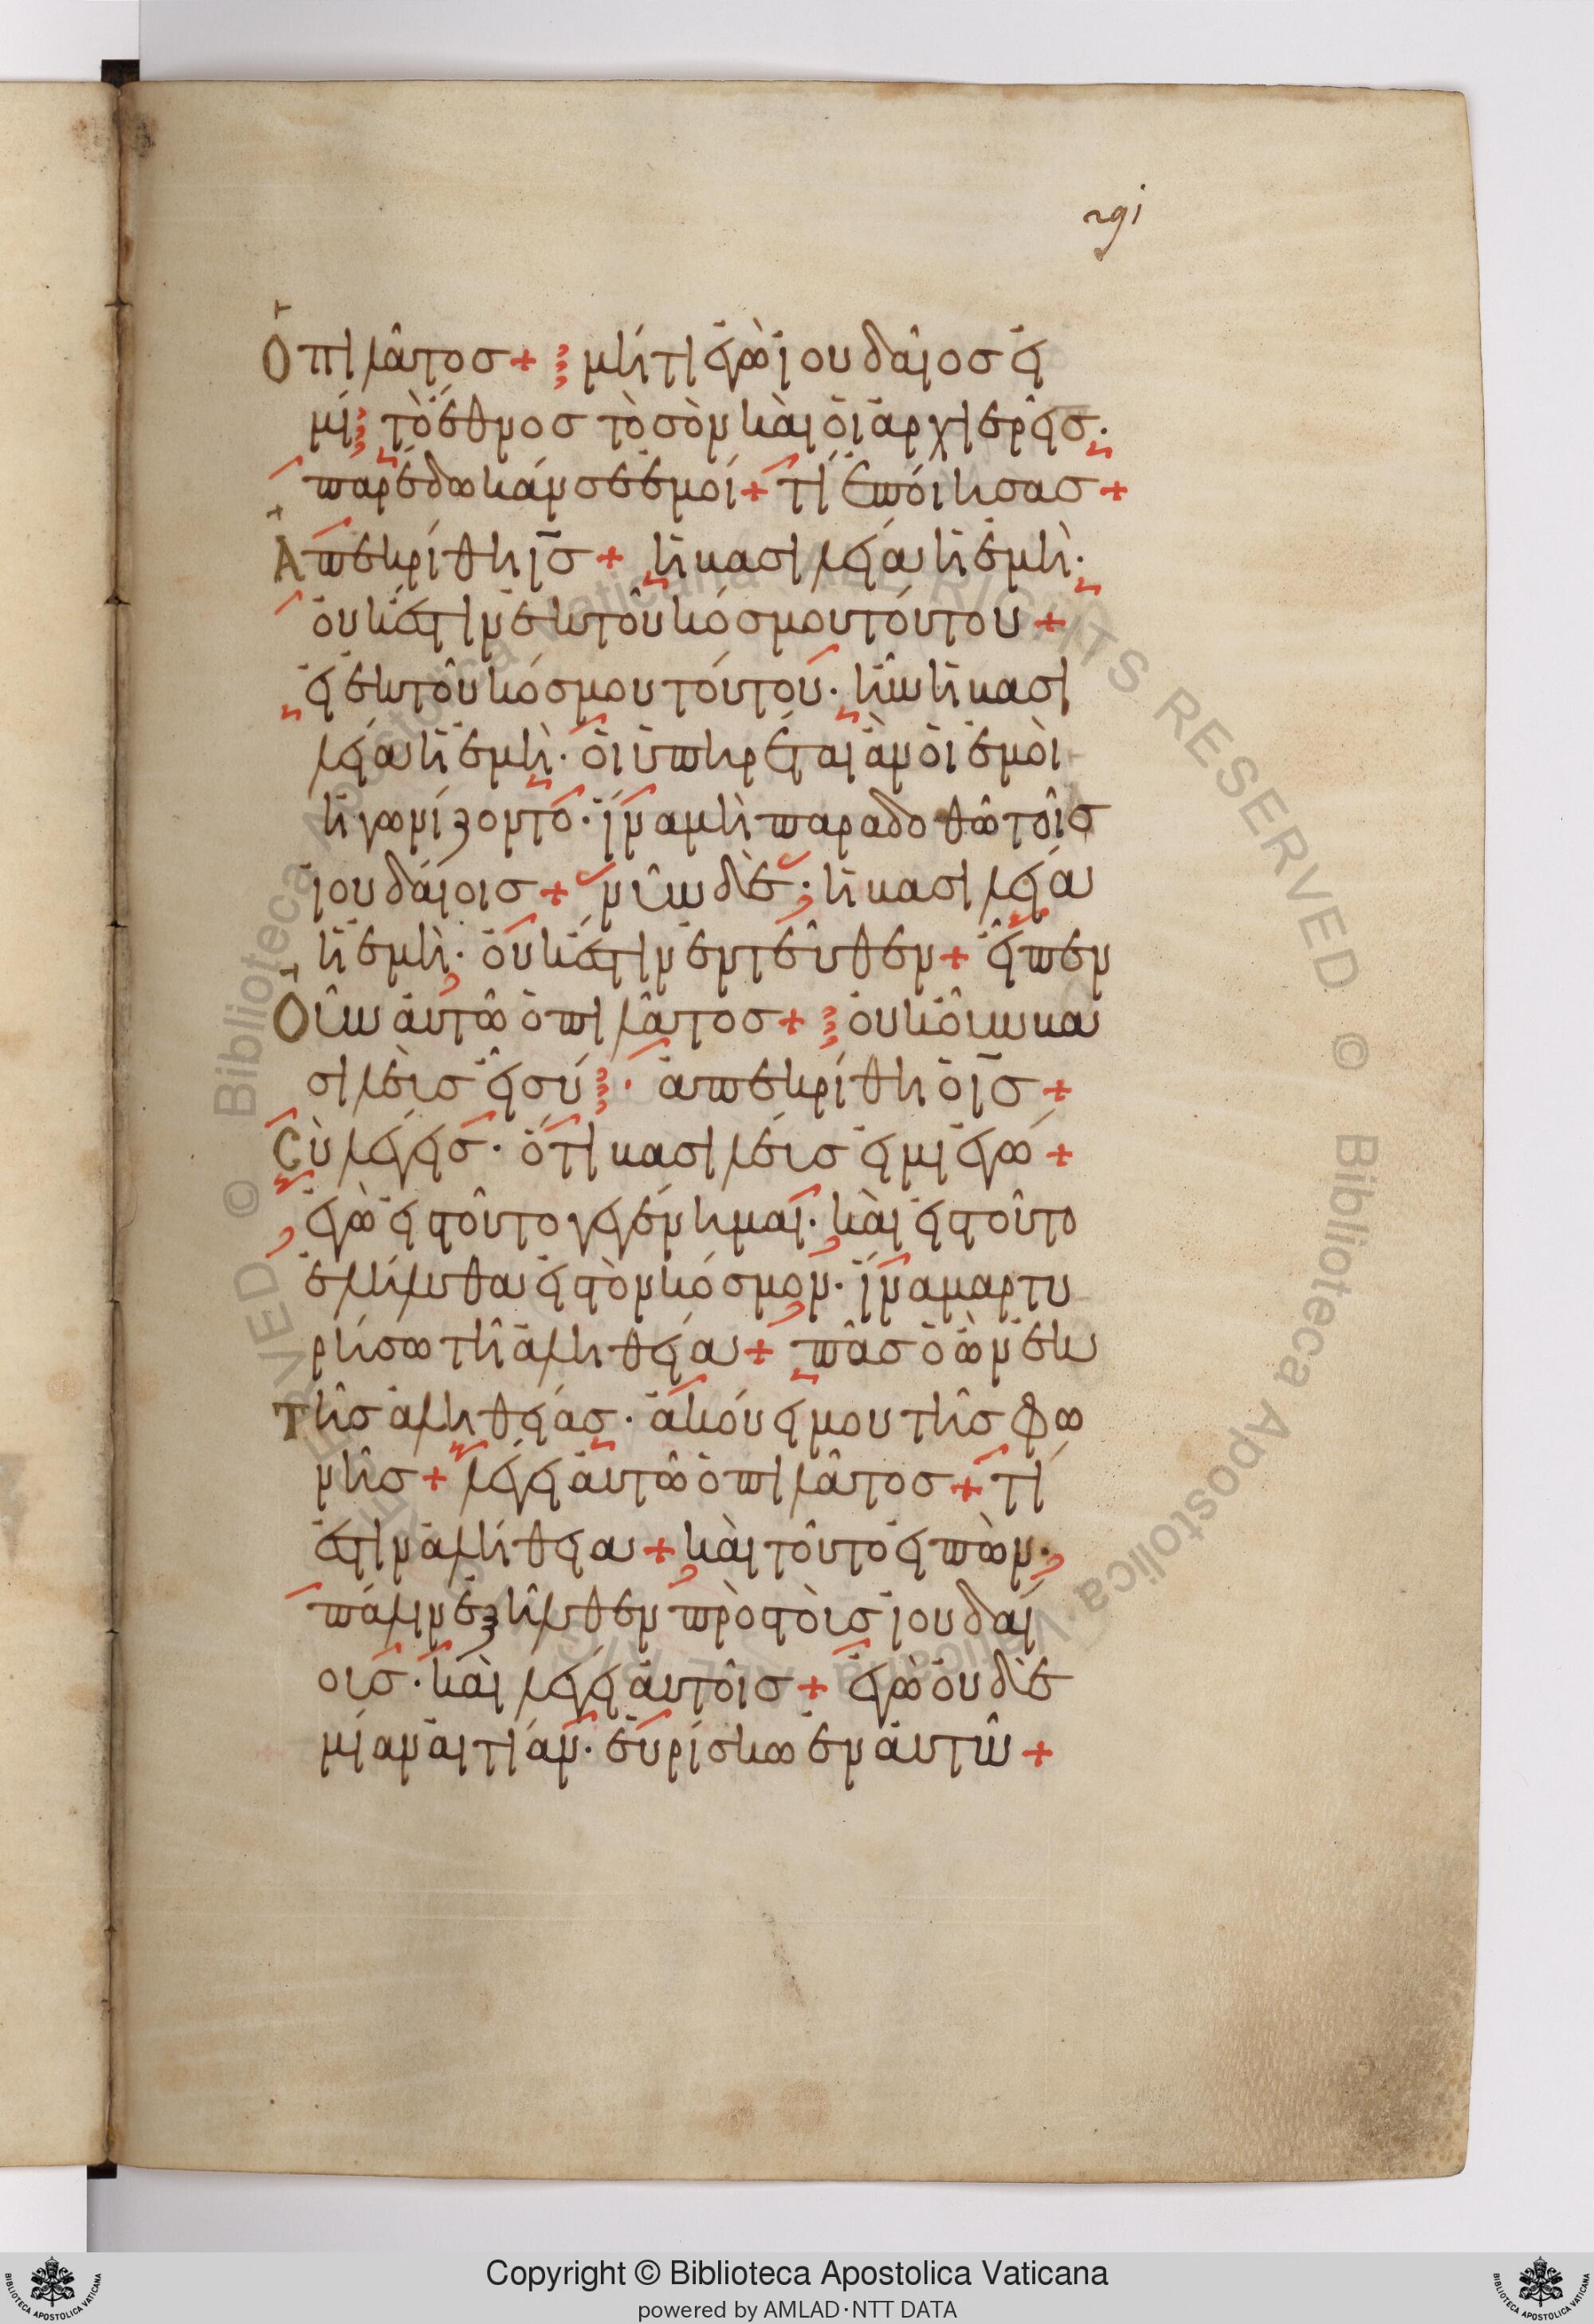 ϟρι
Ὁ πιλᾶτος + μήτι ἐγὼ ἰουδαῖος εἰ
μί· τὸ ἔθνος τὸ σὸν καὶ οἱ ἀρχιερεῖς·
παρέδωκάν σε ἐμοί + τί ἐποίησας +
Ἀπεκρίθη ις̅ + ἡ βασιλεία ἡ ἐμὴ·
οὐκ ἔστιν ἐκ τοῦ κόσμου τούτου +
εἰ ἐκ τοῦ κόσμου τούτου· ἦν ἡ βασι
λεία ἡ ἐμὴ· οἱ ὑπηρέται ἂν οἱ ἐμοὶ
ἠγωνίζοντο· ἵνα μὴ παραδοθῶ τοῖς
ἰουδαίοις + νῦν δὲ· ἡ βασιλεία
ἡ ἐμὴ· οὐκ ἔστιν ἐντεῦθεν + εἶπεν
Οὖν αὐτῶ ὁ πιλᾶτος + οὐκοῦν βα
σιλεὺς εἶ σύ· ἀπεκρίθη ὁ ις̅ +
Σὺ λέγεις· ὅτι βασιλεύς εἰμι ἐγώ +
ἐγὼ εἰς τοῦτο γεγέννημαι· καὶ εἰς τοῦτο
ἐλήλυθα εἰς τὸν κόσμον· ἵνα μαρτυ
ρήσω τῆ ἀληθεία + πᾶς ὁ ὢν ἐκ
τῆς ἀληθείας· ἀκούει μου τῆς φω
νῆς + λέγει αὐτῶ ὁ πιλᾶτος + τί
ἐστιν ἀλήθεια + καὶ τοῦτο εἰπὼν·
πάλιν ἐξῆλθεν πρὸς τοὺς ἰουδαί
ους· καὶ λέγει αὐτοῖς + ἐγὼ οὐδε
μίαν αἰτίαν· εὑρίσκω ἐν αὐτῶ +
© Biblioteca Apostolica Vaticana ALL RIGHTS RESERVED © Biblioteca Apostolica Vaticana
Copyright © Biblioteca Apostolica Vaticana
powered by AMLAD·NTT DATA